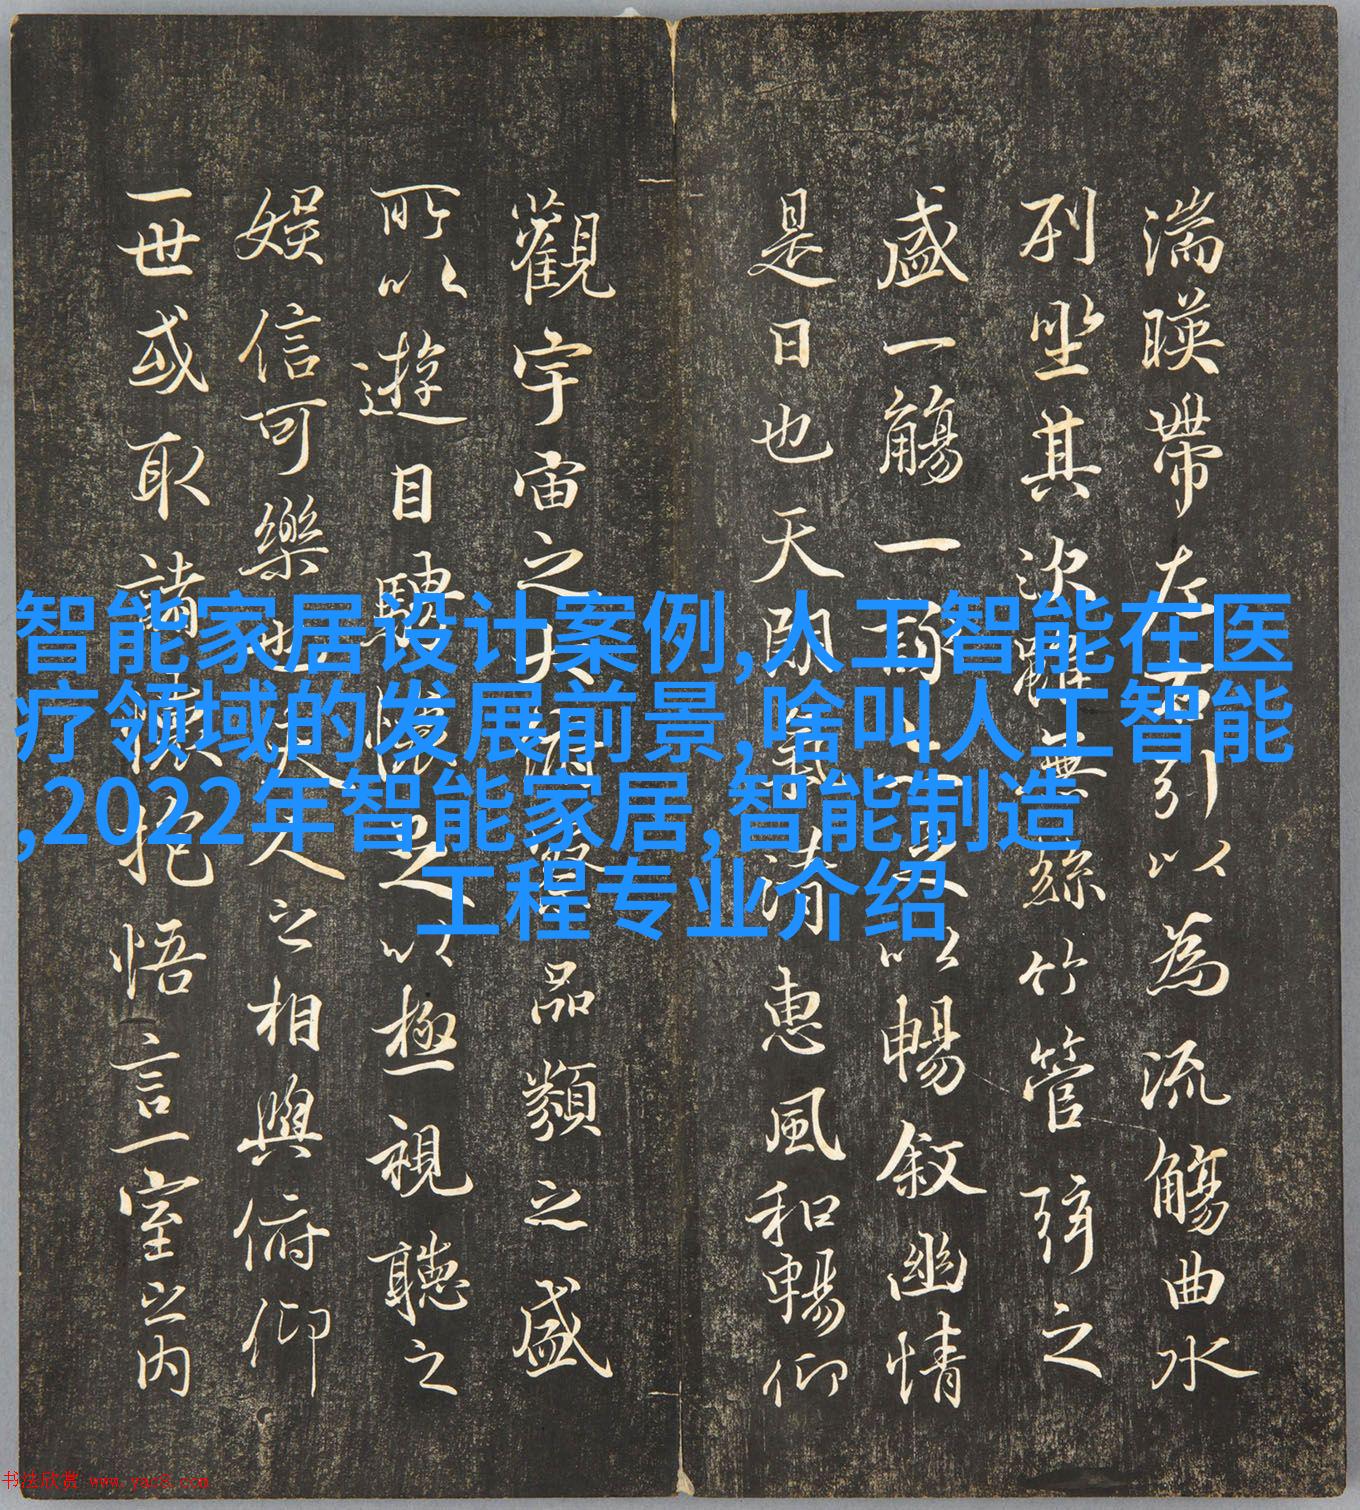 湍暎帶左右引以為流觴曲水
列坐其次雖無絲竹管弦之
盛一觴一詠亦足以暢敘幽情
是日也天朗氣清惠風和暢仰
觀宇宙之大俯察品類之盛
所以遊目騁懷足以極視聽之
娛信可樂也夫人之相與俯仰
一世或取諸懷抱悟言一室之內
智能家居设计案例,人工智能在医
疗领域的发展前景,啥叫人工智能
,2022年智能家居,智能制造
工程专业介绍
书法欣赏 www.yac8.com